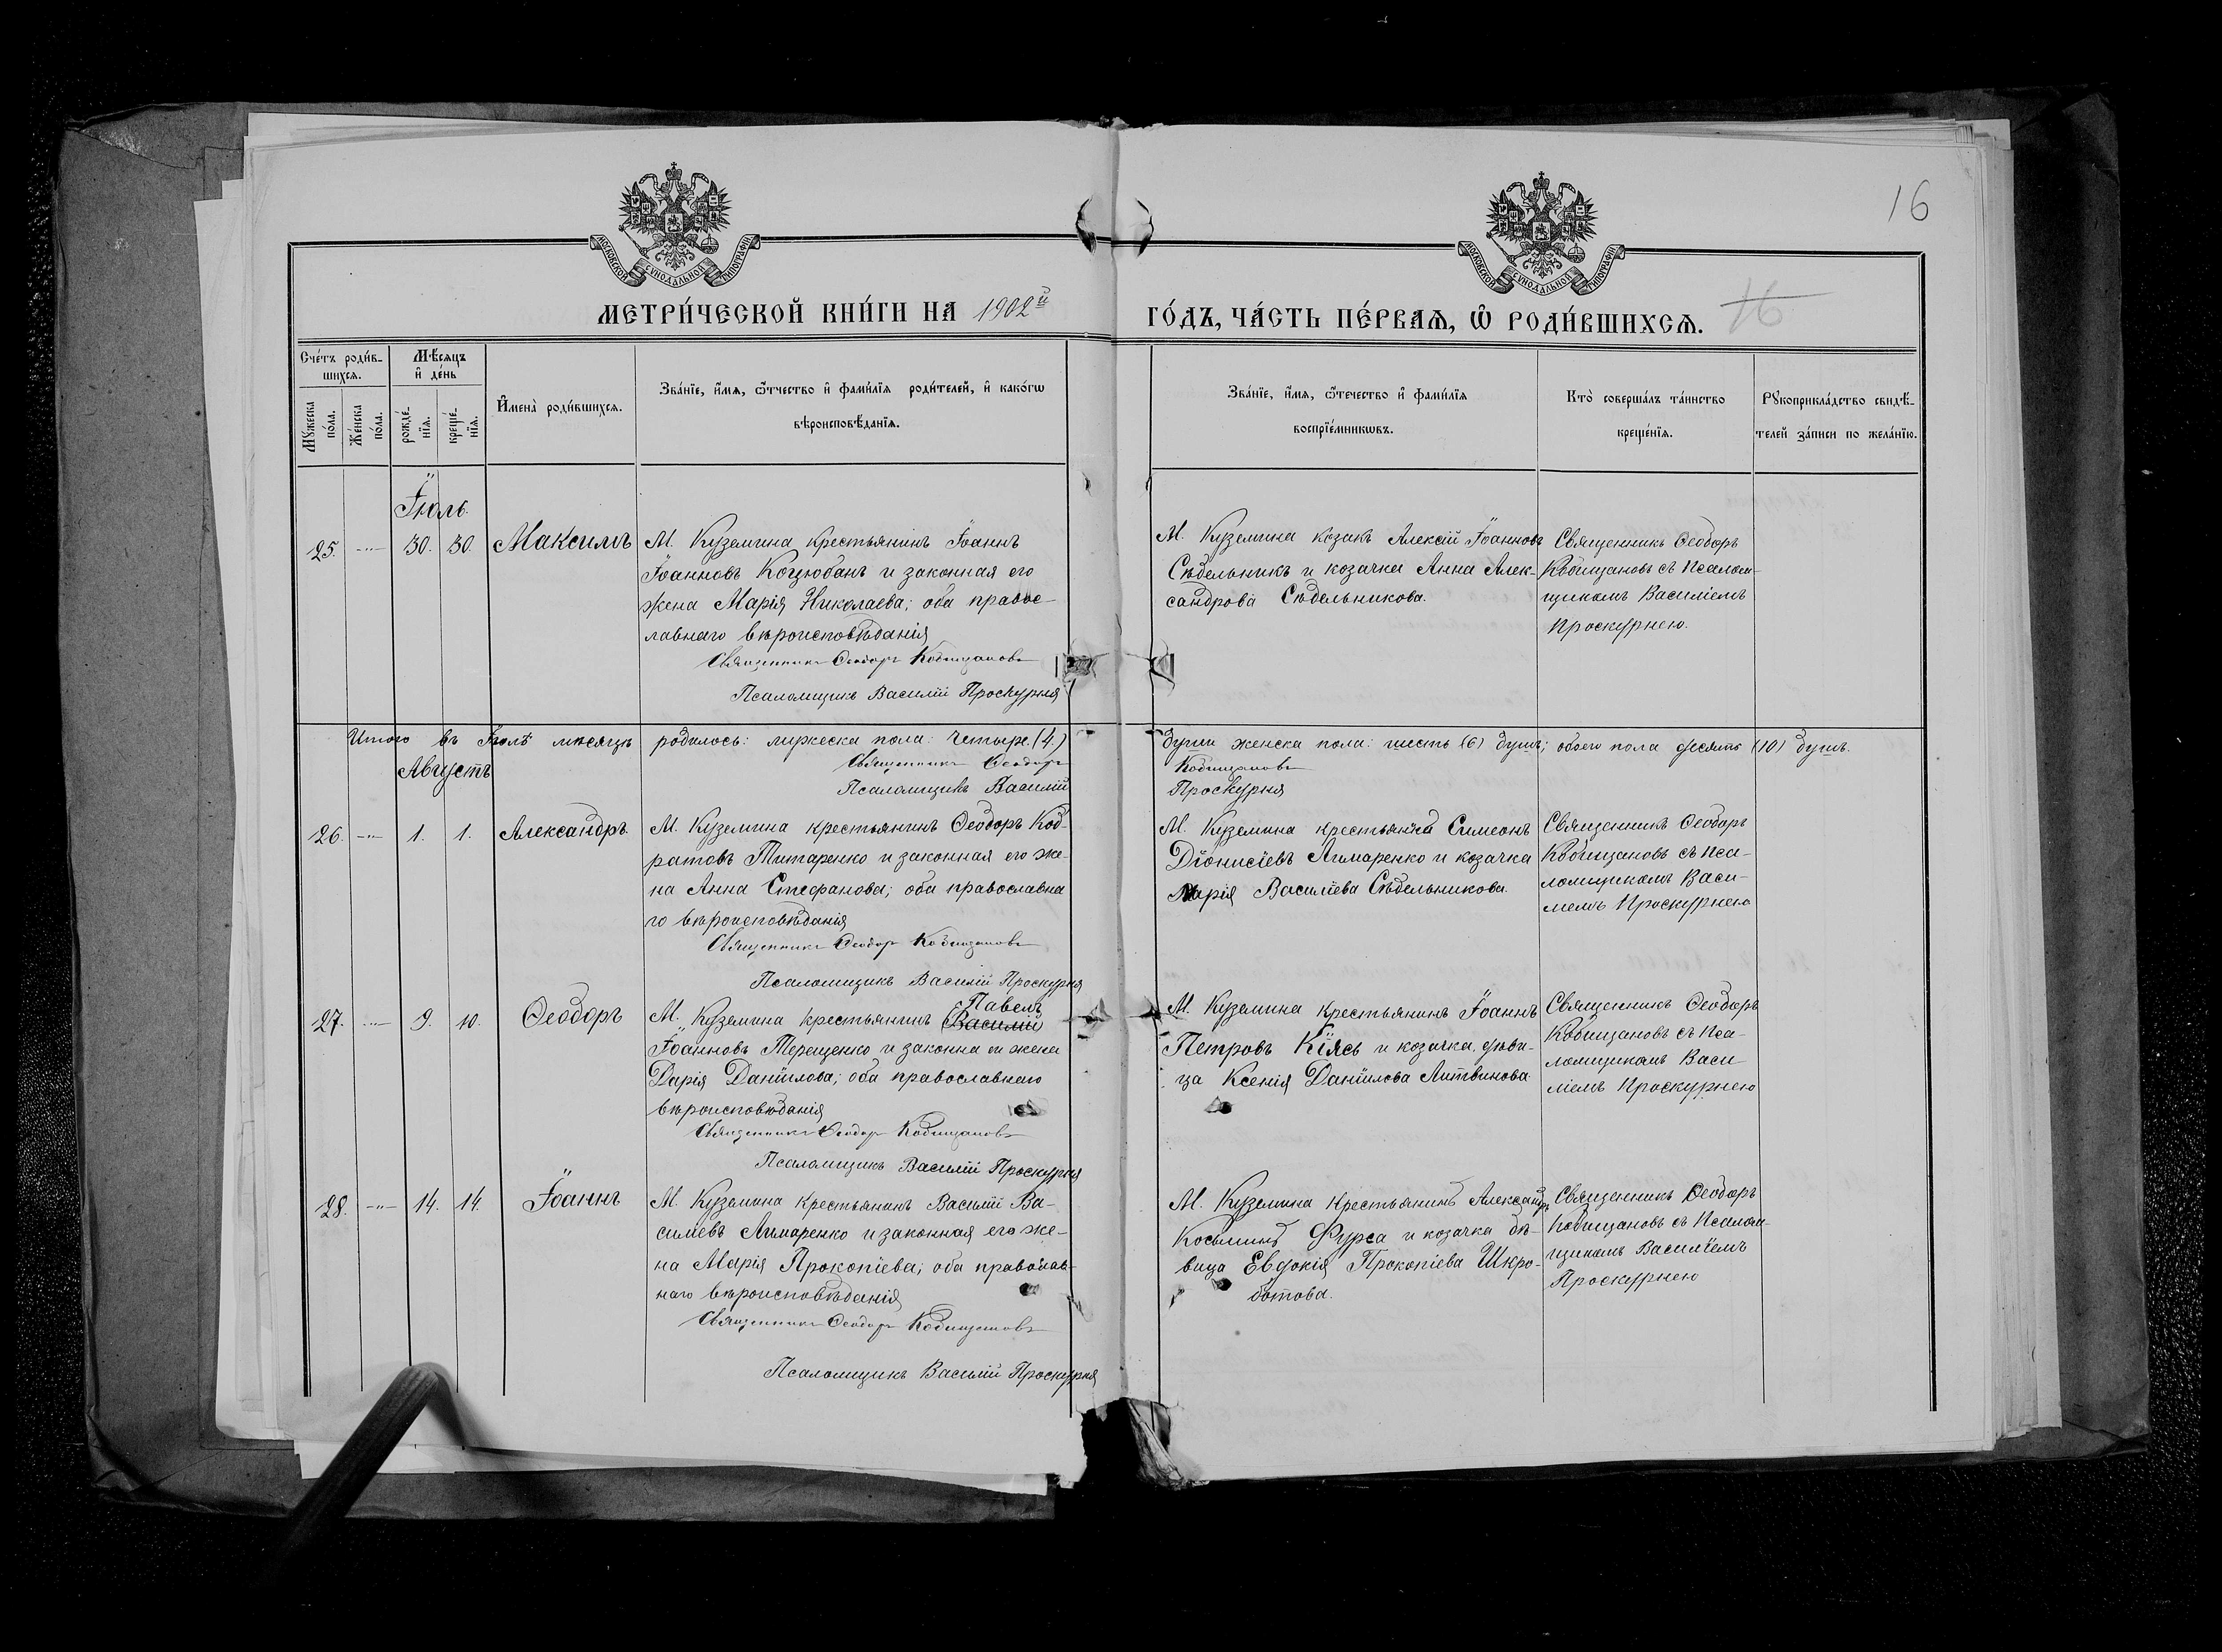 16
МОСКОВСКОЙ СУНОДАЛЬНОЙ ТИПОГРАФІИ
МОСКОВСКОЙ СУНОДАЛЬНОЙ ТИПОГРАФІИ
МЕТРИ́ЧЕСКОЙ КНИ́ГИ НА 1902й
ГО́ДЪ, ЧА́СТЬ ПЕ́РВАѦ, Ѡ РОДИ́ВШИХСѦ. 16
Сче́тъ роди́в-
шихсѧ.
Мѣ́сѧцъ
и҆ де́нь
Му́жеска
по́ла.
Же́нска
по́ла.
рожде́-
нїѧ.
креще́-
нїѧ.
И҆мена̀ роди́вшихсѧ.
Зва́нїе, и҆́мѧ, ѻ҆́тчество и҆ фами́лїѧ роди́телей, и҆ како́гѡ
вѣроисповѣ́данїѧ.
Зва́нїе, и҆́мѧ, ѻ҆́течество и҆ фами́лїѧ
воспрїе́мникѡвъ.
Кто̀ соверша́лъ та́инство
креще́нїѧ.
Рукоприкла́дство свидѣ́-
телей за́писи по жела́нїю.
Іюль.
25. -"- 30. 30. Максимъ
М. Куземина крестьянинъ Іоаннъ
Іоанновъ Коцюбанъ и законная его
жена Марія Николаева; оба правос-
лавнаго вѣроисповѣданія
Священникъ Ѳеодоръ Кобищановъ
Псаломщикъ Василій Проскурня
М. Куземина козакъ Алексій Іоанновъ
Сѣдельникъ и козачка Анна Алек-
сандрова Сѣдельникова.
Священникъ Ѳеодоръ
Кобищановъ съ псалом-
щикомъ Василіемъ
Проскурнею.
Итого въ Іюлѣ мѣсяцѣ родилось: мужеска пола: четыре (4.)
души женска пола: шесть (6) душъ; обоего пола десять (10) душъ.
Священникъ Ѳеодоръ
Кобищановъ
Псаломщикъ Василій
Проскурня
Августъ
26. -"- 1. 1. Александръ
М. Куземина крестьянинъ Ѳеодоръ Код-
ратовъ Титаренко и законная его же-
на Анна Стефанова; оба православна
го вѣроисповѣданія
Священникъ Ѳеодоръ Кобищановъ
Псаломщикъ Василій Проскурня
М. Куземина крестьянинъ Симеонъ
Діонисіевъ Лимаренко и козачка
Марія Василіева Сѣдельникова.
Священникъ Ѳеодоръ
Кобищановъ съ пса-
ломщикомъ Васи-
ліемъ Проскурнею
27. -"- 9. 10. Ѳеодоръ
Павелъ
М. Куземина крестьянинъ Василій
Іоанновъ Терещенко и законна ея жена
Дарія Даніилова; оба православнаго
вѣроисповѣданія
Священникъ Ѳеодоръ Кобищановъ
Псаломщикъ Василій Проскурня
М. Куземина крестьянинъ Іоаннъ
Петровъ Кіясь и козачка дѣви-
ца Ксенія Даніилова Литвинова
Священникъ Ѳеодоръ
Кобищановъ съ пса-
ломщикомъ Васи
ліемъ Проскурнею
28. -"- 14. 14. Іоаннъ
М. Куземина крестьянинъ Василій Ва-
силіевъ Лимаренко и законная его же-
на Марія Прокопіева; оба православ-
наго вѣроисповѣданія
Священникъ Ѳеодоръ Кобищановъ
Псаломщикъ Василій Проскурня
М. Куземина крестьянинъ Александръ
Косьминъ Фурса и козачка дѣ-
вица Евдокія Прокопіева Шкро-
ботова.
Священникъ Ѳеодоръ
Кобищановъ съ псалом-
щикомъ Василіемъ
Проскурнею